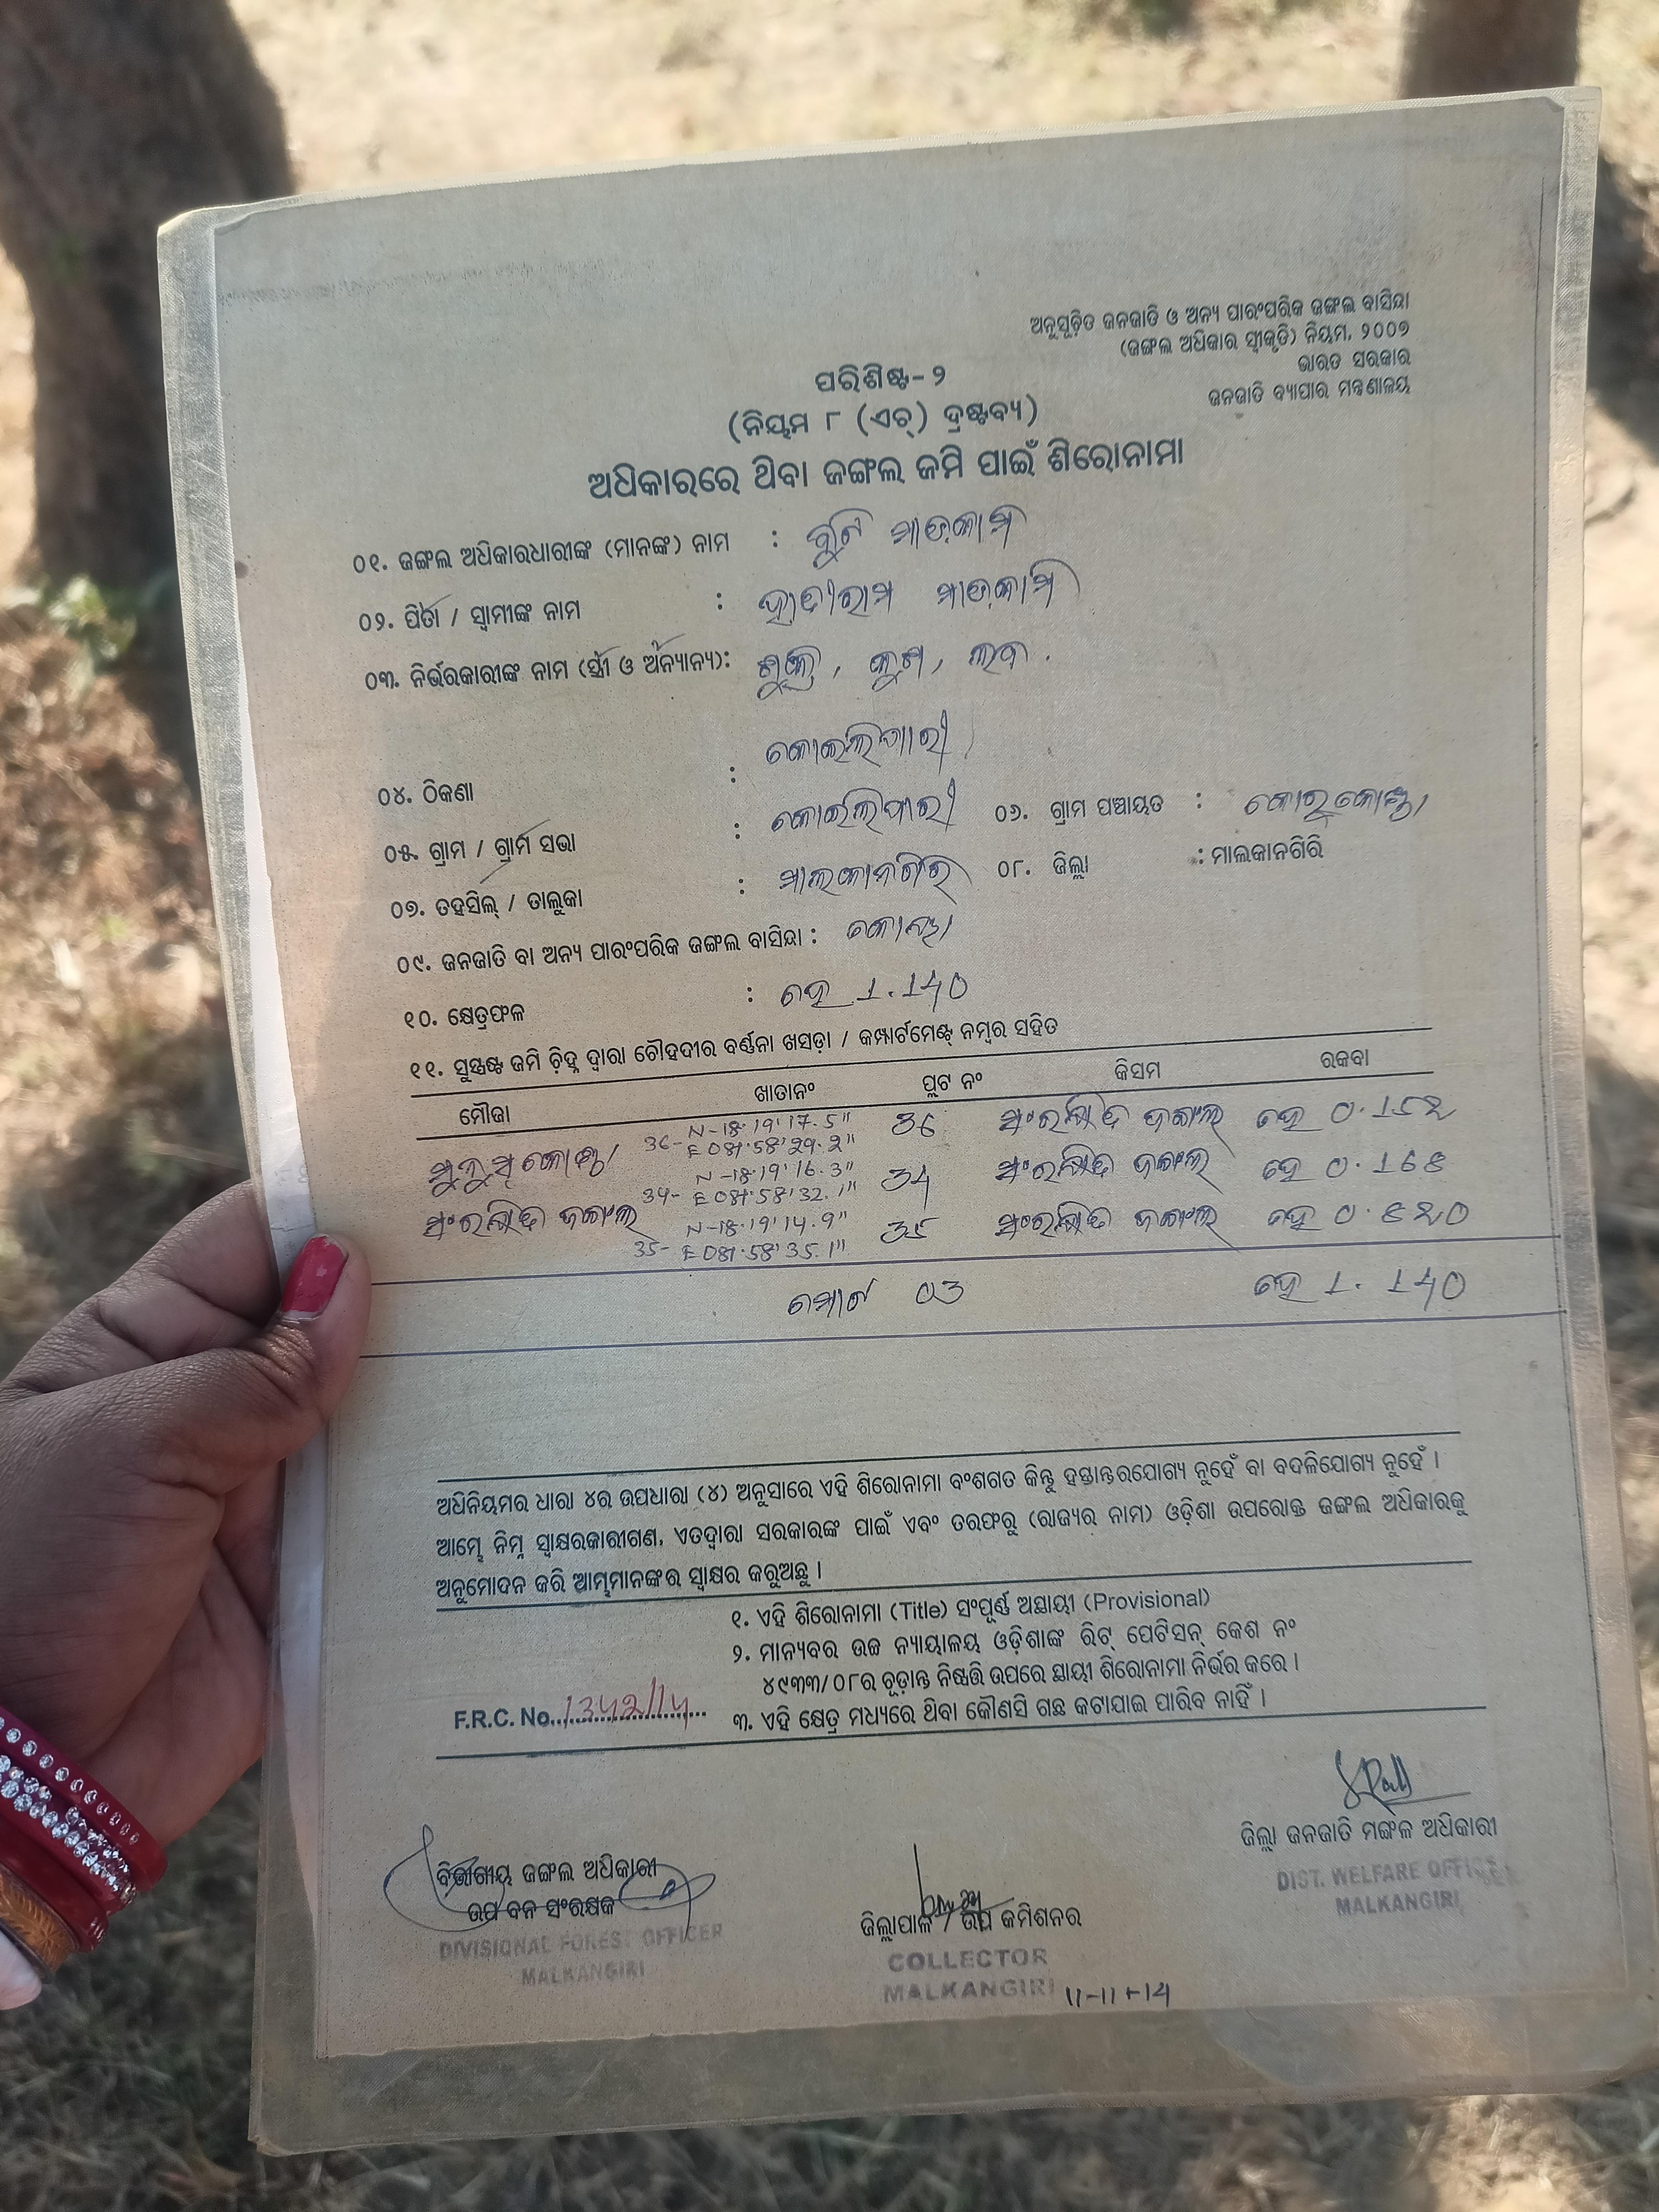 ଅନୁସୂଚିତ ଜନଜାତି ଓ ଅନ୍ୟ ପାରଂପରିକ ଜଙ୍ଗଲ ବାସିନ୍ଦା
(ଜଙ୍ଗଲ ଅଧିକାର ସ୍ୱୀକୃତି) ନିୟମ, ୨୦୦୭
ଭାରତ ସରକାର
ଜନଜାତି ବ୍ୟାପାର ମନ୍ତ୍ରଣାଳୟ
ପରିଶିଷ୍ଟ- ୨
(ନିୟମ ୮ (ଏଚ୍) ଦ୍ରଷ୍ଟବ୍ୟ)
ଅଧିକାରରେ ଥିବା ଜଙ୍ଗଲ ଜମି ପାଇଁ ଶିରୋନାମା
୦୧. ଜଙ୍ଗଲ ଅଧିକାରଧାରୀଙ୍କ (ମାନଙ୍କ) ନାମ : ବୁଟି ମାଡ଼କାମି
୦୨. ପିତା / ସ୍ୱାମୀଙ୍କ ନାମ : ହାଡୀରାମ ମାଡ଼କାମି
୦୩. ନିର୍ଭରକାରୀଙ୍କ ନାମ (ସ୍ତ୍ରୀ ଓ ଅନ୍ୟାନ୍ୟ): ଶୁକ୍ର, କୁଶ, ଲବ.
୦୪. ଠିକଣା : କୋଇଲିପାରୀ
୦୫. ଗ୍ରାମ / ଗ୍ରାମ ସଭା : କୋଇଲିପାରୀ ୦୬. ଗ୍ରାମ ପଞ୍ଚାୟତ : କୋରୁକୋଣ୍ଡା
୦୭. ତହସିଲ୍ / ତାଲୁକା : ମାଲକାନଗିରି ୦୮. ଜିଲ୍ଲା : ମାଲକାନଗିରି
୦୯. ଜନଜାତି ବା ଅନ୍ୟ ପାରଂପରିକ ଜଙ୍ଗଲ ବାସିନ୍ଦା : କୋୟା
୧୦. କ୍ଷେତ୍ରଫଳ : ହେ 1.140
୧୧. ସୁସ୍ପଷ୍ଟ ଜମି ଚିହ୍ନ ଦ୍ୱାରା ଚୌହଦୀର ବର୍ଣ୍ଣନା ଖସଡ଼ା / କମ୍ପାର୍ଟମେଣ୍ଟ୍ ନମ୍ବର ସହିତ
ମୌଜା ଖାତାନଂ ପ୍ଲଟ ନଂ କିସମ ରକବା
36- N-18°19'17.5" E 081°58'29.2" 36 ସଂରକ୍ଷିତ ଜଙ୍ଗଲ ହେ 0.152
34- N-18°19'16.3" E 081°58'32.1" 34 ସଂରକ୍ଷିତ ଜଙ୍ଗଲ ହେ 0.168
ସଂରକ୍ଷିତ ଜଙ୍ଗଲ 35- N-18°19'14.9" E 081°58'35.1" 35 ସଂରକ୍ଷିତ ଜଙ୍ଗଲ ହେ 0.820
ମୋଟ 03 ହେ 1.140
ଅଧିନିୟମର ଧାରା ୪ର ଉପଧାରା (୪) ଅନୁସାରେ ଏହି ଶିରୋନାମା ବଂଶଗତ କିନ୍ତୁ ହସ୍ତାନ୍ତରଯୋଗ୍ୟ ନୁହେଁ ବା ବଦଳିଯୋଗ୍ୟ ନୁହେଁ ।
ଆମ୍ଭେ ନିମ୍ନ ସ୍ୱାକ୍ଷରକାରୀଗଣ, ଏତଦ୍ୱାରା ସରକାରଙ୍କ ପାଇଁ ଏବଂ ତରଫରୁ (ରାଜ୍ୟର ନାମ) ଓଡ଼ିଶା ଉପରୋକ୍ତ ଜଙ୍ଗଲ ଅଧିକାରକୁ
ଅନୁମୋଦନ କରି ଆମ୍ଭମାନଙ୍କର ସ୍ୱାକ୍ଷର କରୁଅଛୁ ।
୧. ଏହି ଶିରୋନାମା (Title) ସଂପୂର୍ଣ୍ଣ ଅସ୍ଥାୟୀ (Provisional)
୨. ମାନ୍ୟବର ଉଚ୍ଚ ନ୍ୟାୟାଳୟ ଓଡ଼ିଶାଙ୍କ ରିଟ୍ ପେଟିସନ୍ କେଶ ନଂ
୪୯୩୩/୦୮ର ଚୂଡ଼ାନ୍ତ ନିଷ୍ପତ୍ତି ଉପରେ ସ୍ଥାୟୀ ଶିରୋନାମା ନିର୍ଭର କରେ ।
F.R.C. No. 1342/14
୩. ଏହି କ୍ଷେତ୍ର ମଧ୍ୟରେ ଥିବା କୌଣସି ଗଛ କଟାଯାଇ ପାରିବ ନାହିଁ ।
ଜିଲ୍ଲା ଜନଜାତି ମଙ୍ଗଳ ଅଧିକାରୀ
DIST. WELFARE OFFICER
MALKANGIRI
ବିଭାଗୀୟ ଜଙ୍ଗଲ ଅଧିକାରୀ
ଉପ ବନ ସଂରକ୍ଷକ
DIVISIONAL FOREST OFFICER
MALKANGIRI
ଜିଲ୍ଲାପାଳ / ଉପ କମିଶନର
COLLECTOR
MALKANGIRI 11-11-14